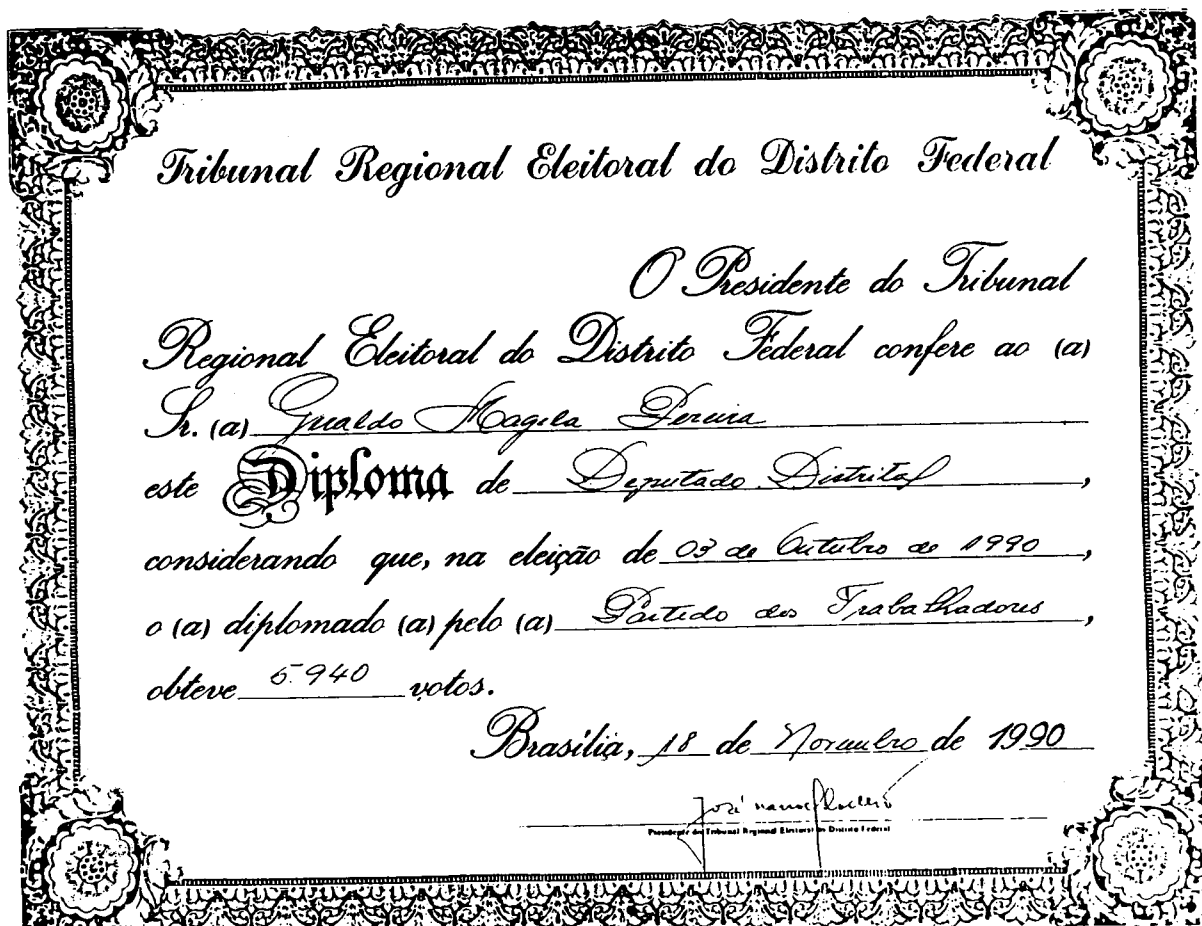 Tribunal Regional Eleitoral do Distrito Federal
O Presidente do Tribunal
Regional Eleitoral do Distrito Federal confere ao (a)
Sr. (a) Geraldo Magela Pereira
este Diploma de Deputado Distrital,
considerando que, na eleição de 03 de Outubro de 1990,
o (a) diplomado (a) pelo (a) Partido dos Trabalhadores,
obteve 5.940 votos.
Brasília, 18 de Novembro de 1990
José
Presidente do Tribunal Regional Eleitoral do Distrito Federal